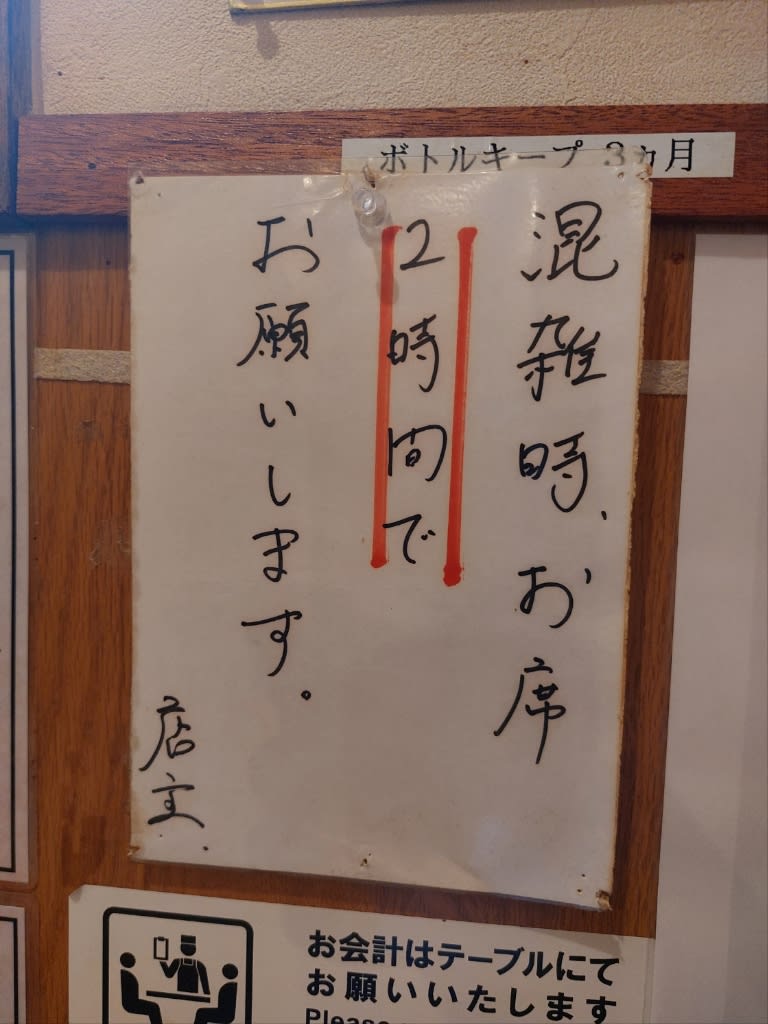 ボトルキープ 3ヵ月
混雑時、お席
2時間で
お願いします。
店主.
お会計はテーブルにて
お願いいたします
Please